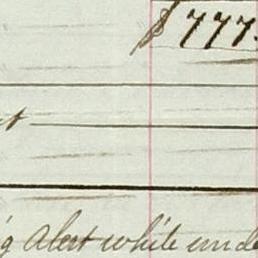 $ 777.
t
g Alert white unde